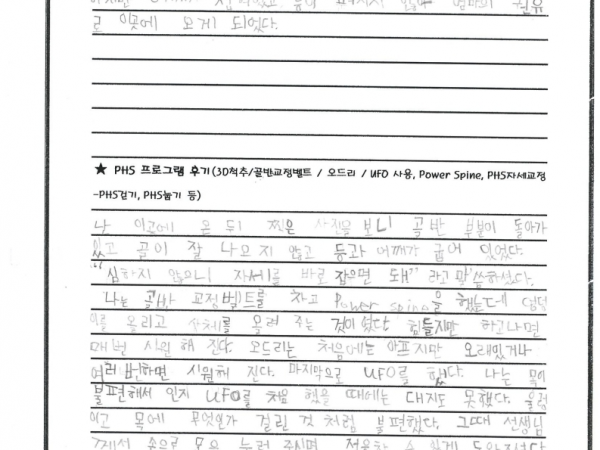 권유
로 이곳에 오게 되었다.
★ PHS 프로그램 후기(3D척추/골반교정벨트 / 오드리 / UFO 사용, Power Spine, PHS자세교정
-PHS걷기, PHS눕기 등)
난 이곳에 온 뒤 찍은 사진을 보니 골반 부분이 돌아가
있고 골이 잘 나오지 않고 등과 어깨가 굽어 있었다.
"심하지 않으니 자세를 바로 잡으면 돼" 라고 말씀하셨다.
나는 골바 교정벨트를 차고 Power spine을 했는데
를 올리고 상체를 올려 주는 것이 었다 힘들지만 하고나면
매번 시원해 진다. 오드리는 처음에는 아프지만 오래있거나
여러번하면 시원해 진다. 마지막으로 UFO를 했다. 나는 목이
불편해서 인지 UFO를 처음 했을 때에는 대지도 못했다. 울렁
이고 목에 무엇인가 걸린 것 처럼 불편했다. 그때 선생님
께서 손으로 목을 눌러 주시면